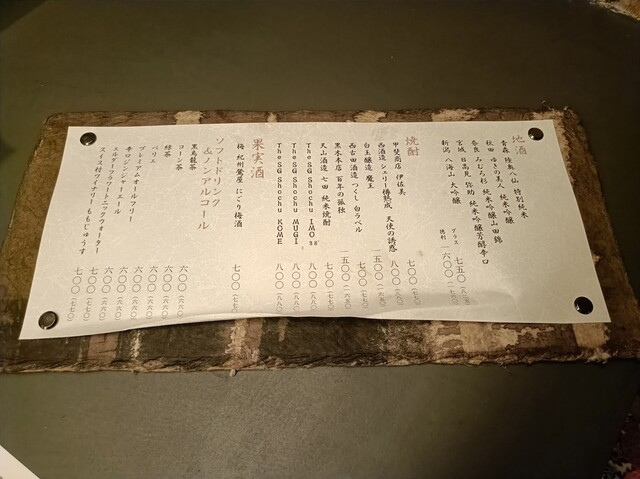 地酒
青森 陸奥八仙 特別純米
秋田 ゆきの美人 純米吟醸
奈良 みむろ杉 純米吟醸山田錦
宮城 日高見 弥助 純米吟醸芳醇辛口
新潟 八海山 大吟醸
グラス 七五〇(八二五)
徳利 一六〇〇
焼酎
甲斐商店 伊佐美 七〇〇(七七〇)
西酒造 シェリー樽熟成 天使の誘惑 八〇〇(八八〇)
白玉醸造 魔王 一五〇〇(一六五〇)
西吉田酒造 つくし 白ラベル 七〇〇(七七〇)
黒木本店 百年の孤独 一五〇〇(一六五〇)
天山酒造 七田 純米焼酎 七〇〇(七七〇)
The SG Shochu IMO 八〇〇(八八〇)
The SG Shochu MUGI 八〇〇(八八〇)
The SG Shochu KOME 八〇〇(八八〇)
果実酒
梅 紀州鶯屋 にごり梅酒 七〇〇(七七〇)
ソフトドリンク
&ノンアルコール
黒烏龍茶 六〇〇(六六〇)
コーン茶 六〇〇(六六〇)
緑茶 六〇〇(六六〇)
ペリエ 六〇〇(六六〇)
プレミアムオールフリー 六〇〇(六六〇)
辛口ジンジャーエール 六〇〇(六六〇)
エルダーフラワートニックウォーター 七〇〇(七七〇)
スイス村ワイナリー ももじゅうす 七〇〇(七七〇)